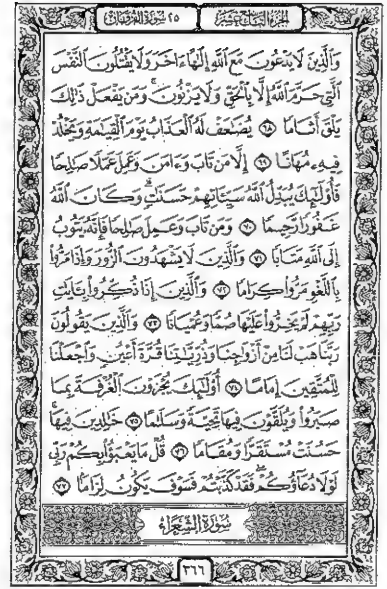 الجزء التاسع عشر ٢٥ سورة الفرقان
وَالَّذِينَ لَا يَدْعُونَ مَعَ اللَّهِ إِلَٰهًا ءَاخَرَ وَلَا يَقْتُلُونَ النَّفْسَ
الَّتِي حَرَّمَ اللَّهُ إِلَّا بِالْحَقِّ وَلَا يَزْنُونَ ۚ وَمَن يَفْعَلْ ذَٰلِكَ
يَلْقَ أَثَامًا ٦٨ يُضَٰعَفْ لَهُ الْعَذَابُ يَوْمَ الْقِيَٰمَةِ وَيَخْلُدْ
فِيهِۦ مُهَانًا ٦٩ إِلَّا مَن تَابَ وَءَامَنَ وَعَمِلَ عَمَلًا صَٰلِحًا
فَأُولَٰئِكَ يُبَدِّلُ اللَّهُ سَيِّـَٔاتِهِمْ حَسَنَٰتٍ ۗ وَكَانَ اللَّهُ
غَفُورًا رَّحِيمًا ٧٠ وَمَن تَابَ وَعَمِلَ صَٰلِحًا فَإِنَّهُ يَتُوبُ
إِلَى اللَّهِ مَتَابًا ٧١ وَالَّذِينَ لَا يَشْهَدُونَ الزُّورَ وَإِذَا مَرُّوا
بِاللَّغْوِ مَرُّوا كِرَامًا ٧٢ وَالَّذِينَ إِذَا ذُكِّرُوا بِـَٔايَٰتِ
رَبِّهِمْ لَمْ يَخِرُّوا عَلَيْهَا صُمًّا وَعُمْيَانًا ٧٣ وَالَّذِينَ يَقُولُونَ
رَبَّنَا هَبْ لَنَا مِنْ أَزْوَٰجِنَا وَذُرِّيَّٰتِنَا قُرَّةَ أَعْيُنٍ وَاجْعَلْنَا
لِلْمُتَّقِينَ إِمَامًا ٧٤ أُولَٰئِكَ يُجْزَوْنَ الْغُرْفَةَ بِمَا
صَبَرُوا وَيُلَقَّوْنَ فِيهَا تَحِيَّةً وَسَلَٰمًا ٧٥ خَٰلِدِينَ فِيهَا ۚ
حَسُنَتْ مُسْتَقَرًّا وَمُقَامًا ٧٦ قُلْ مَا يَعْبَؤُا بِكُمْ رَبِّي
لَوْلَا دُعَاؤُكُمْ ۖ فَقَدْ كَذَّبْتُمْ فَسَوْفَ يَكُونُ لِزَامًا ٧٧
سورة الشعراء
٣٦٦